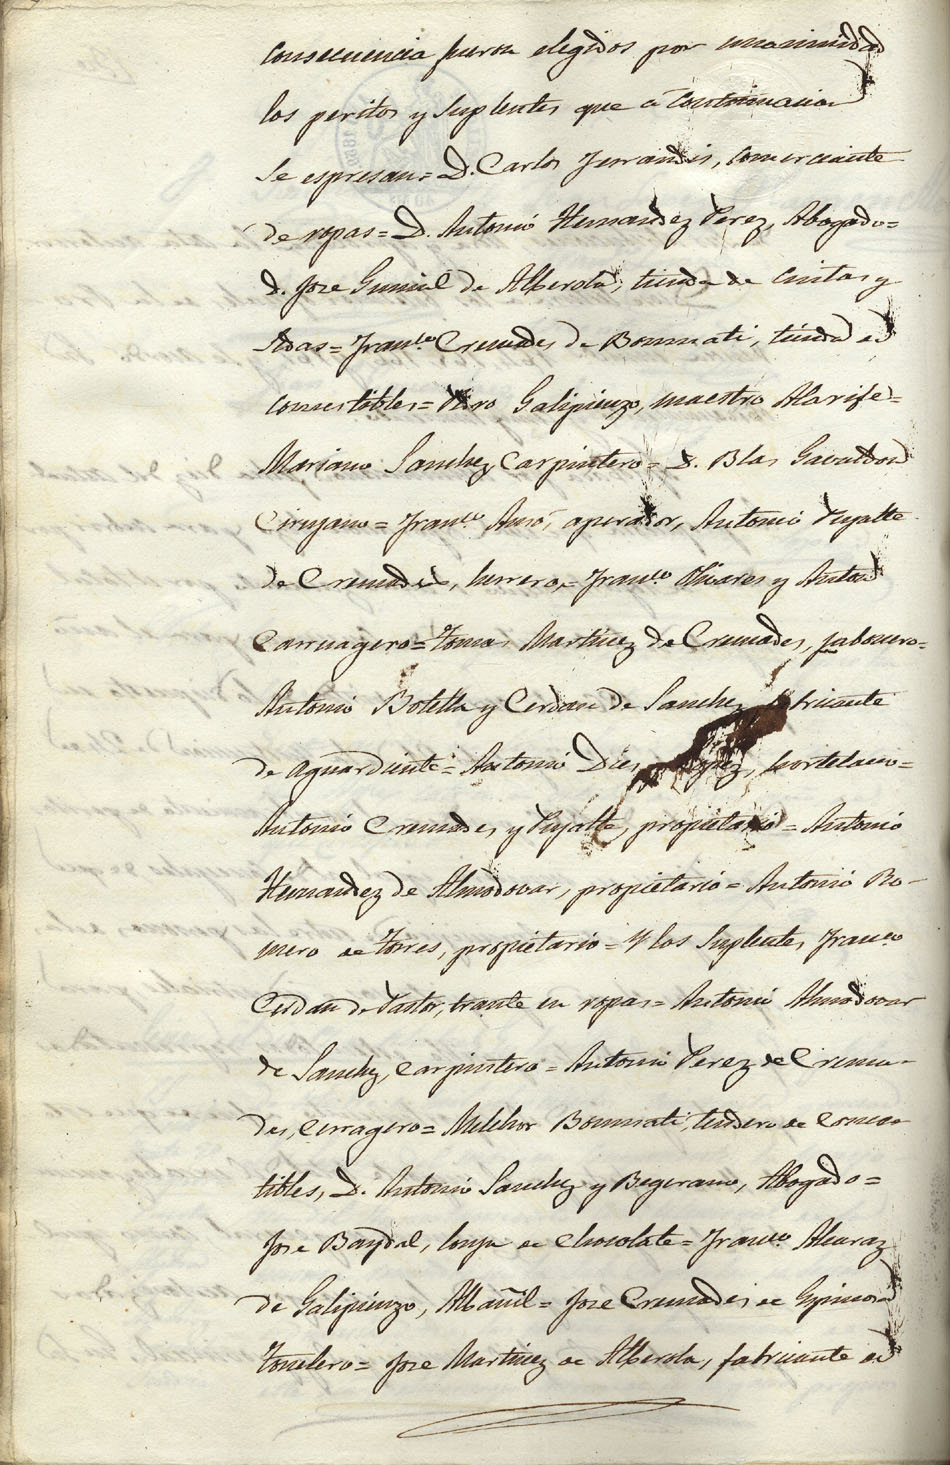 consecuencia fueron elegidos por unanimidad
los peritos y suplentes que a continuacion
se espresan = D. Carlos Jurrandis, comerciante
de ropas = D. Antonio Hernandez Perez, Abogado =
D. Jose Gumiel de Alberola, tienda de cintas y
sedas = Franco Cremades de Bonmati, tienda de
comestibles = Galipienzo, maestro Alarife =
Mariano Sanchez, Carpintero = D. Blas Gavaldon
Cirujano = Franco Amó, aperador, Antonio Pujalte
de Cremades, herrero = Franco Olivares y Anton
Carruagero = Tomas Martinez de Cremades, jabonero =
Antonio Botella y Cerdan de Sanchez, fabricante
de aguardiente = Antonio Dies hortelano =
Antonio Cremades y Pujalte, propietario = Antonio
Hernandez de Almodovar, propietario = Antonio Ro-
mero de Torres, propietario = Y los suplentes Franco
Cerdan de Pastor, trante en ropas = Antonio Almodovar
de Sanchez, Carpintero = Antonio Perez de Crema-
des, cerragero = Melchor Bonmati, tendero de comes-
tibles, D. Antonio Sanchez y Begerano, Abogado =
Jose lonja de chocolate = Franco Alcaraz
de Galipienzo, Albañil = Jose Cremades de Espinosa
tonelero = Jose Martinez de Alberola, fabricante de